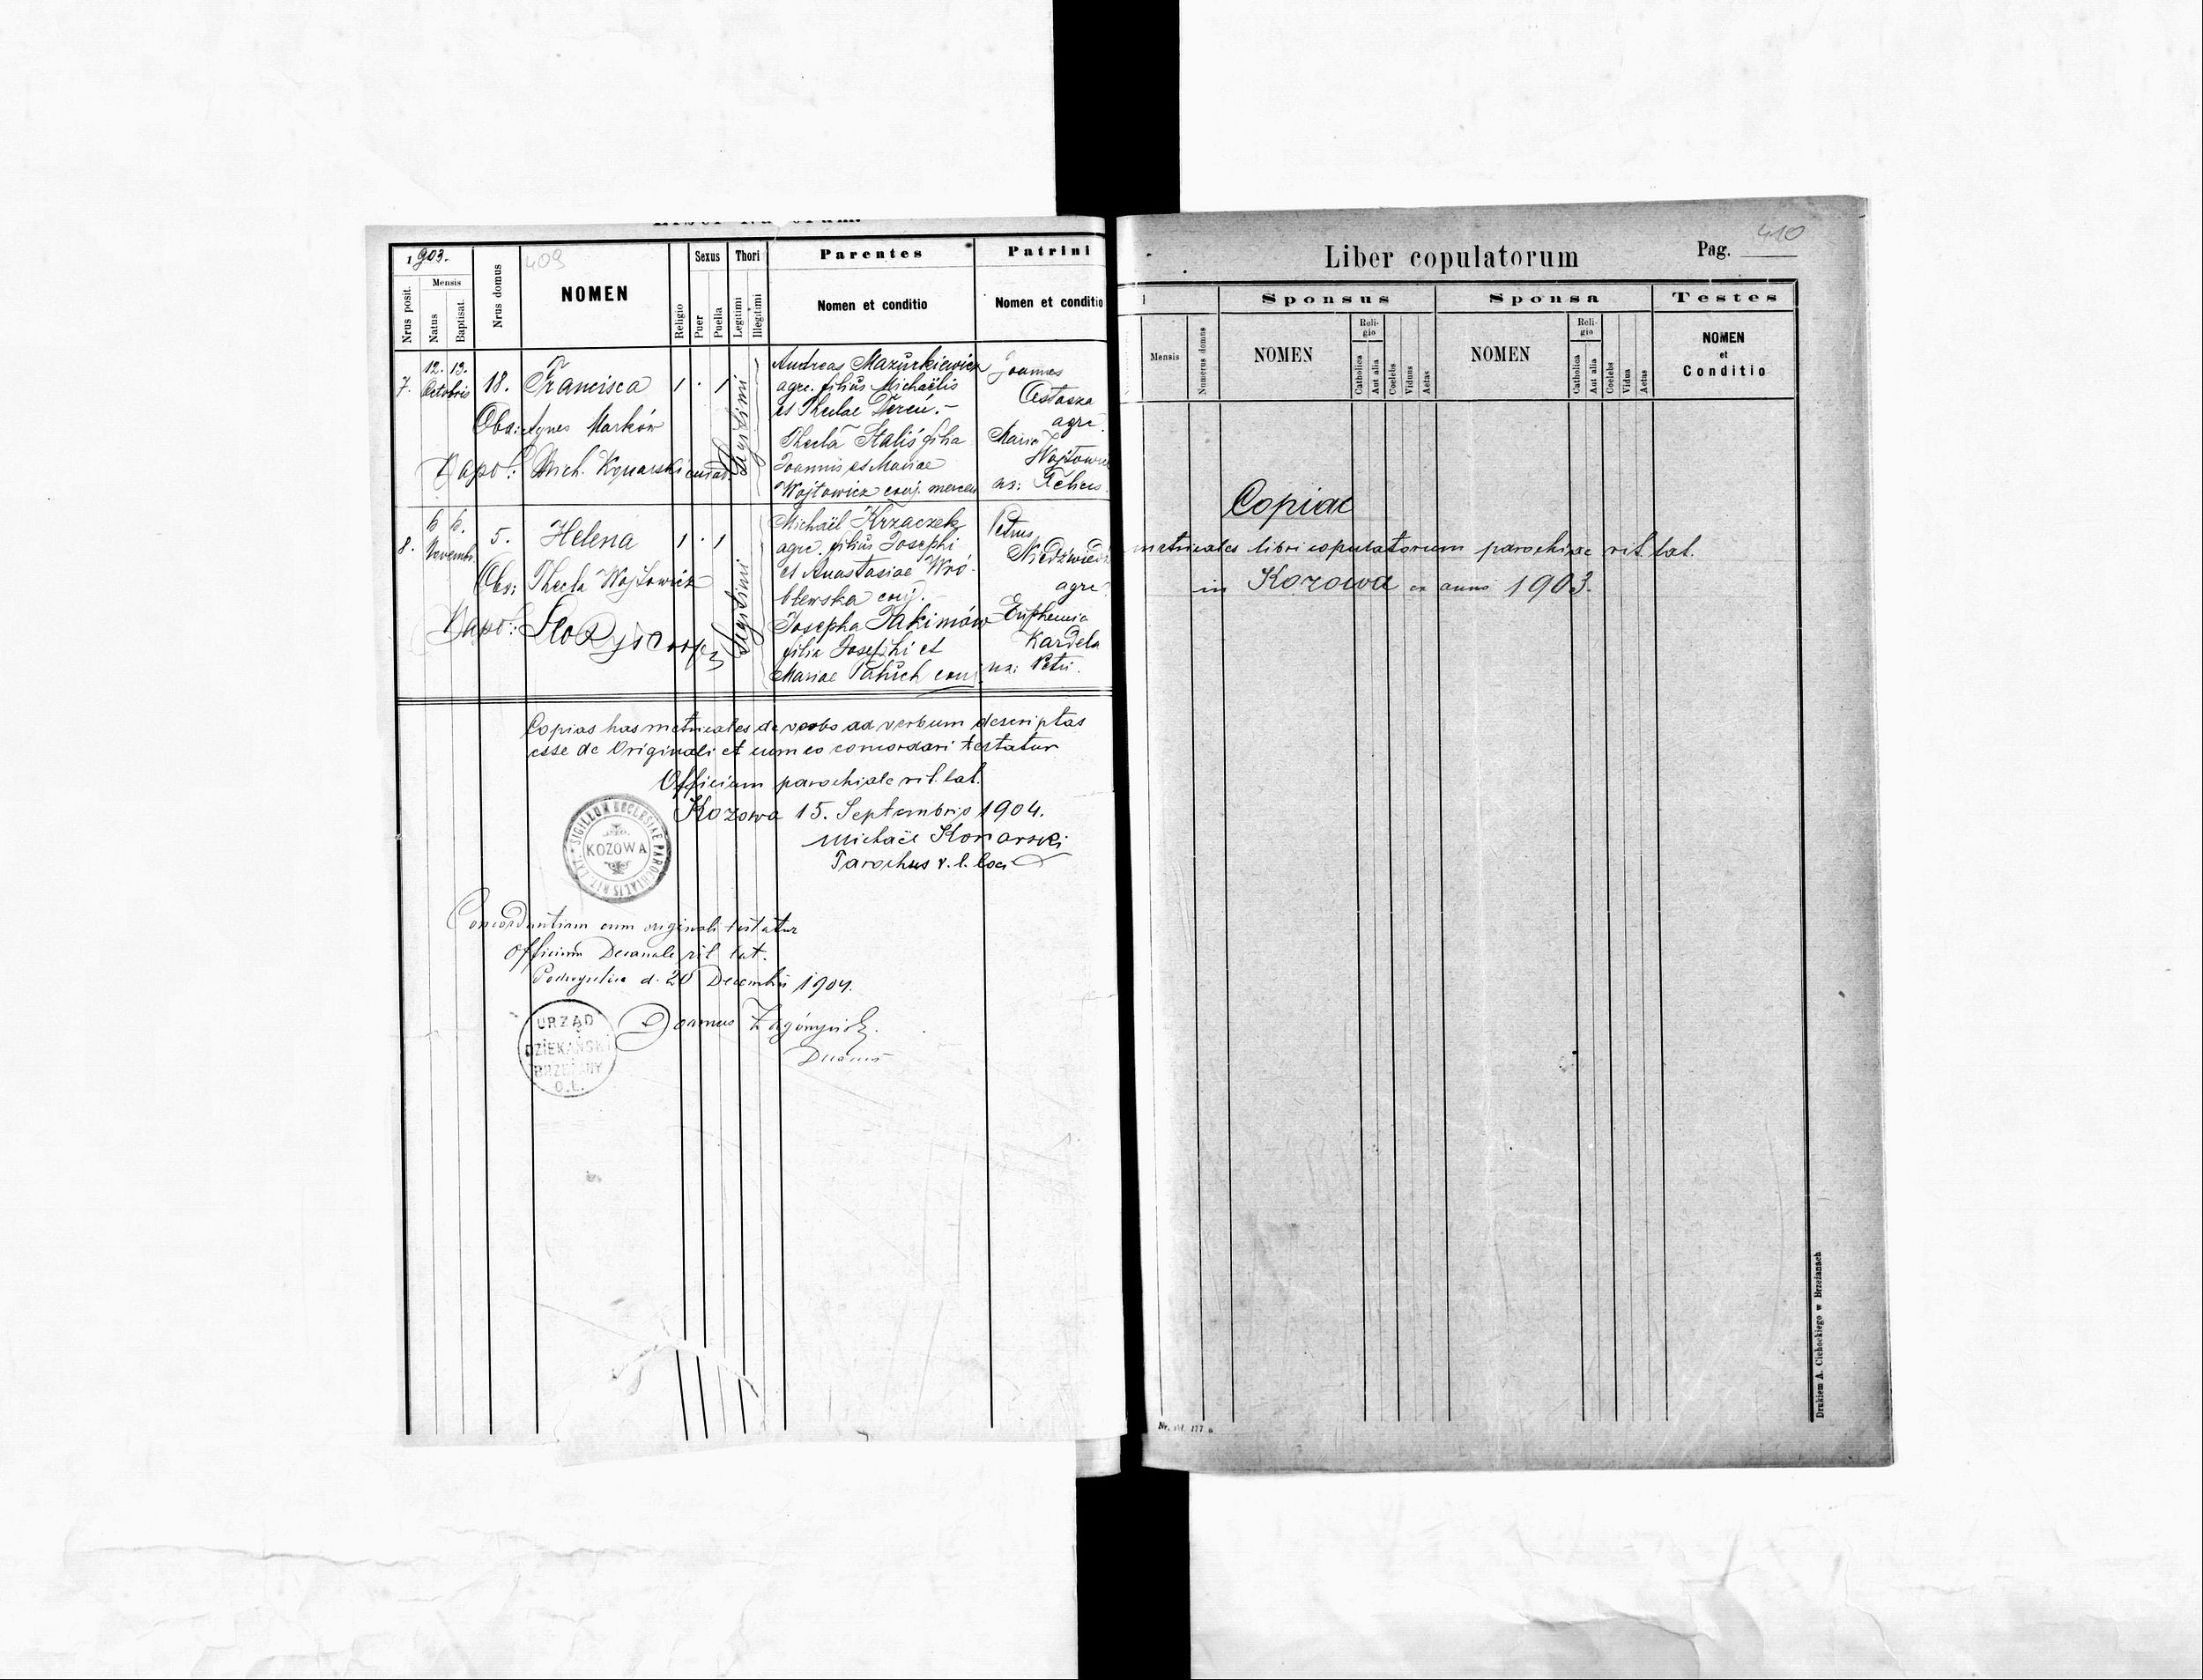 1903.
409
Nrus posit.
Mensis
Natus
Baptisat.
Nrus domus
NOMEN
Religio
Sexus
Puer
Puella
Thori
Legitimi
Illegitimi
Parentes
Nomen et conditio
Patrini
Nomen et conditio
7.
12. 13.
Octobris
18.
Francisca
1 . 1
Legitimi
Obs: Agnes Marków
Bapt: Mich. Konarski
Andreas Mazurkiewicz
agrc. filius Michaëlis
et Theclae Dereń.-
Thecla Staliś filia
Joannis et Mariae
Wojtowicz conj.
Joannes
Ostasza
agrc.
Maria
Wojtowicz
ux: Felicis
8.
6 6.
Novemb.
5.
Helena
1 . 1
Legitimi
Obs: Thecla Wojtowicz
Bapt:
Michaël Krzaczek
agrc. filius Josephi
et Anastasiae Wró-
blewska conj.-
Josepha Jakimów
filia Josephi et
Mariae Pałuch conj.
Petrus
Niedźwiedź
agrc.
Euphemia
Kardela
ux: Petri.
Copias has metricales de verbo ad verbum descriptas
esse de Originali et cum eo concordari testatur
Officium parochiale rit. lat.
Kozowa 15. Septembris 1904.
Michaël Konarski
Parochus r. l. loci
SIGILLUM ECCLESIAE PAROCHIALIS RIT. LAT.
KOZOWA
Concordantiam cum originali testatur
Officium Decanale rit lat.
d. 20 Decembris 1904.
Joannes
Decanus
URZĄD
DZIEKAŃSKI
BRZEŻANY
O.Ł.
Liber copulatorum
Pag.
410
Mensis
Numerus domus
Sponsus
NOMEN
Reli-
gio
Catholica
Aut alia
Coelebs
Viduus
Aetas
Sponsa
NOMEN
Reli-
gio
Catholica
Aut alia
Coelebs
Vidua
Aetas
Testes
NOMEN
et
Conditio
Copiae
metricales libri copulatorum parochiae rit. lat.
in Kozowa ex anno 1903.
Drukiem A. Cichockiego w Brzeżanach